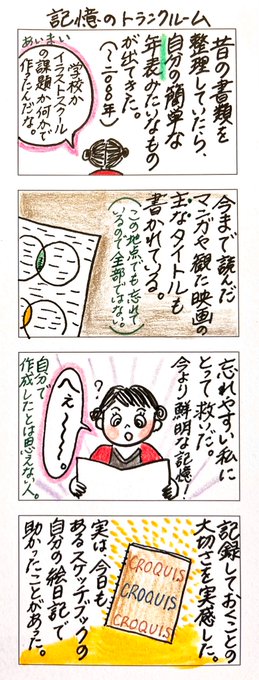 記憶のトランクルーム
昔の書類を
整理していたら、
自分の簡単な
年表みたいなもの
が出てきた。
(〜二〇〇八年)
あいまい
学校か
イラストスクール
の課題か何かで
作たんだな。
今まで読んだ
マンガや観た映画の
主なタイトルも
書かれている。
(この地点でも忘れて
いるので全部ではない。)
忘れやすい私に
とって救いだ。
今より鮮明な記憶!
?
へぇ〜〜。
自分で
作成したとは思えない人。
記録しておくことの
大切さを実感した。
CROQUIS
CROQUIS
CROQUIS
実は、今日も
あるスケッチブックの
自分の絵日記で
助かったことがあった。